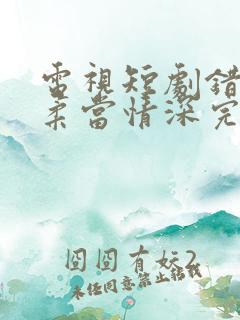 電視短劇錯
柔當情深完
囧囧有妖2
未经同意禁止转载